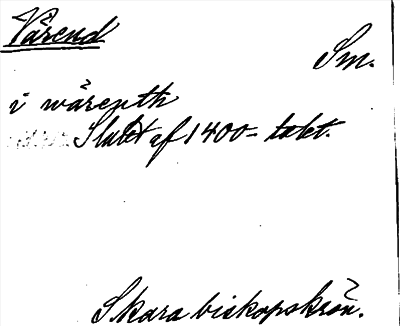 Värend
Sm.
i wärenth
Slutet af 1400-talet.
Skara biskopskrön.